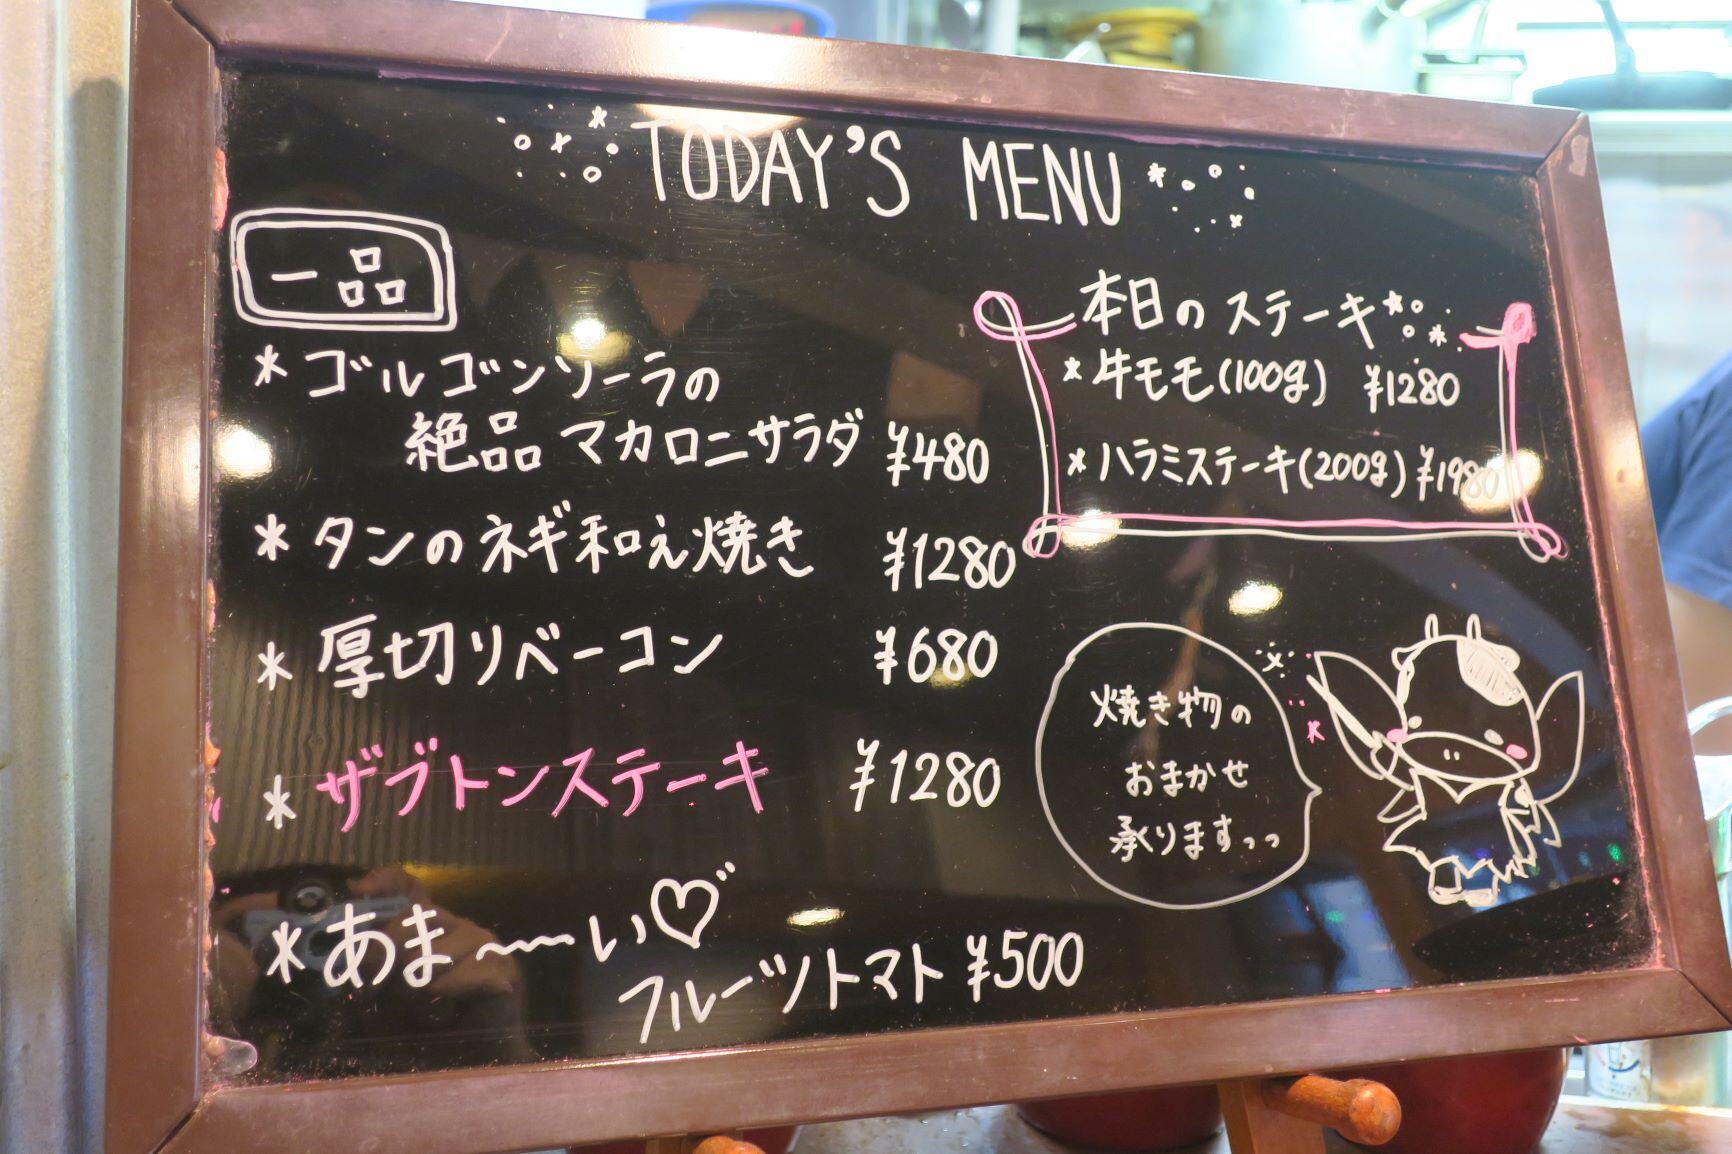 TODAY'S MENU
一品
* ゴルゴンゾーラの
絶品マカロニサラダ ¥480
* タンのネギ和え焼き ¥1280
* 厚切りベーコン ¥680
* ザブトンステーキ ¥1280
* あま〜〜い♡
フルーツトマト ¥500
本日のステーキ
* 牛モモ(100g) ¥1280
* ハラミステーキ(200g) ¥1980
焼き物の
おまかせ
承りますっっ